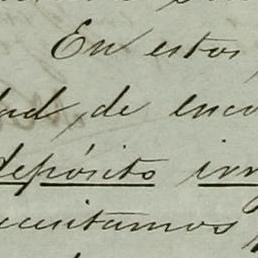 En estos,
dad, de enco
depósito inn
ecesitamos